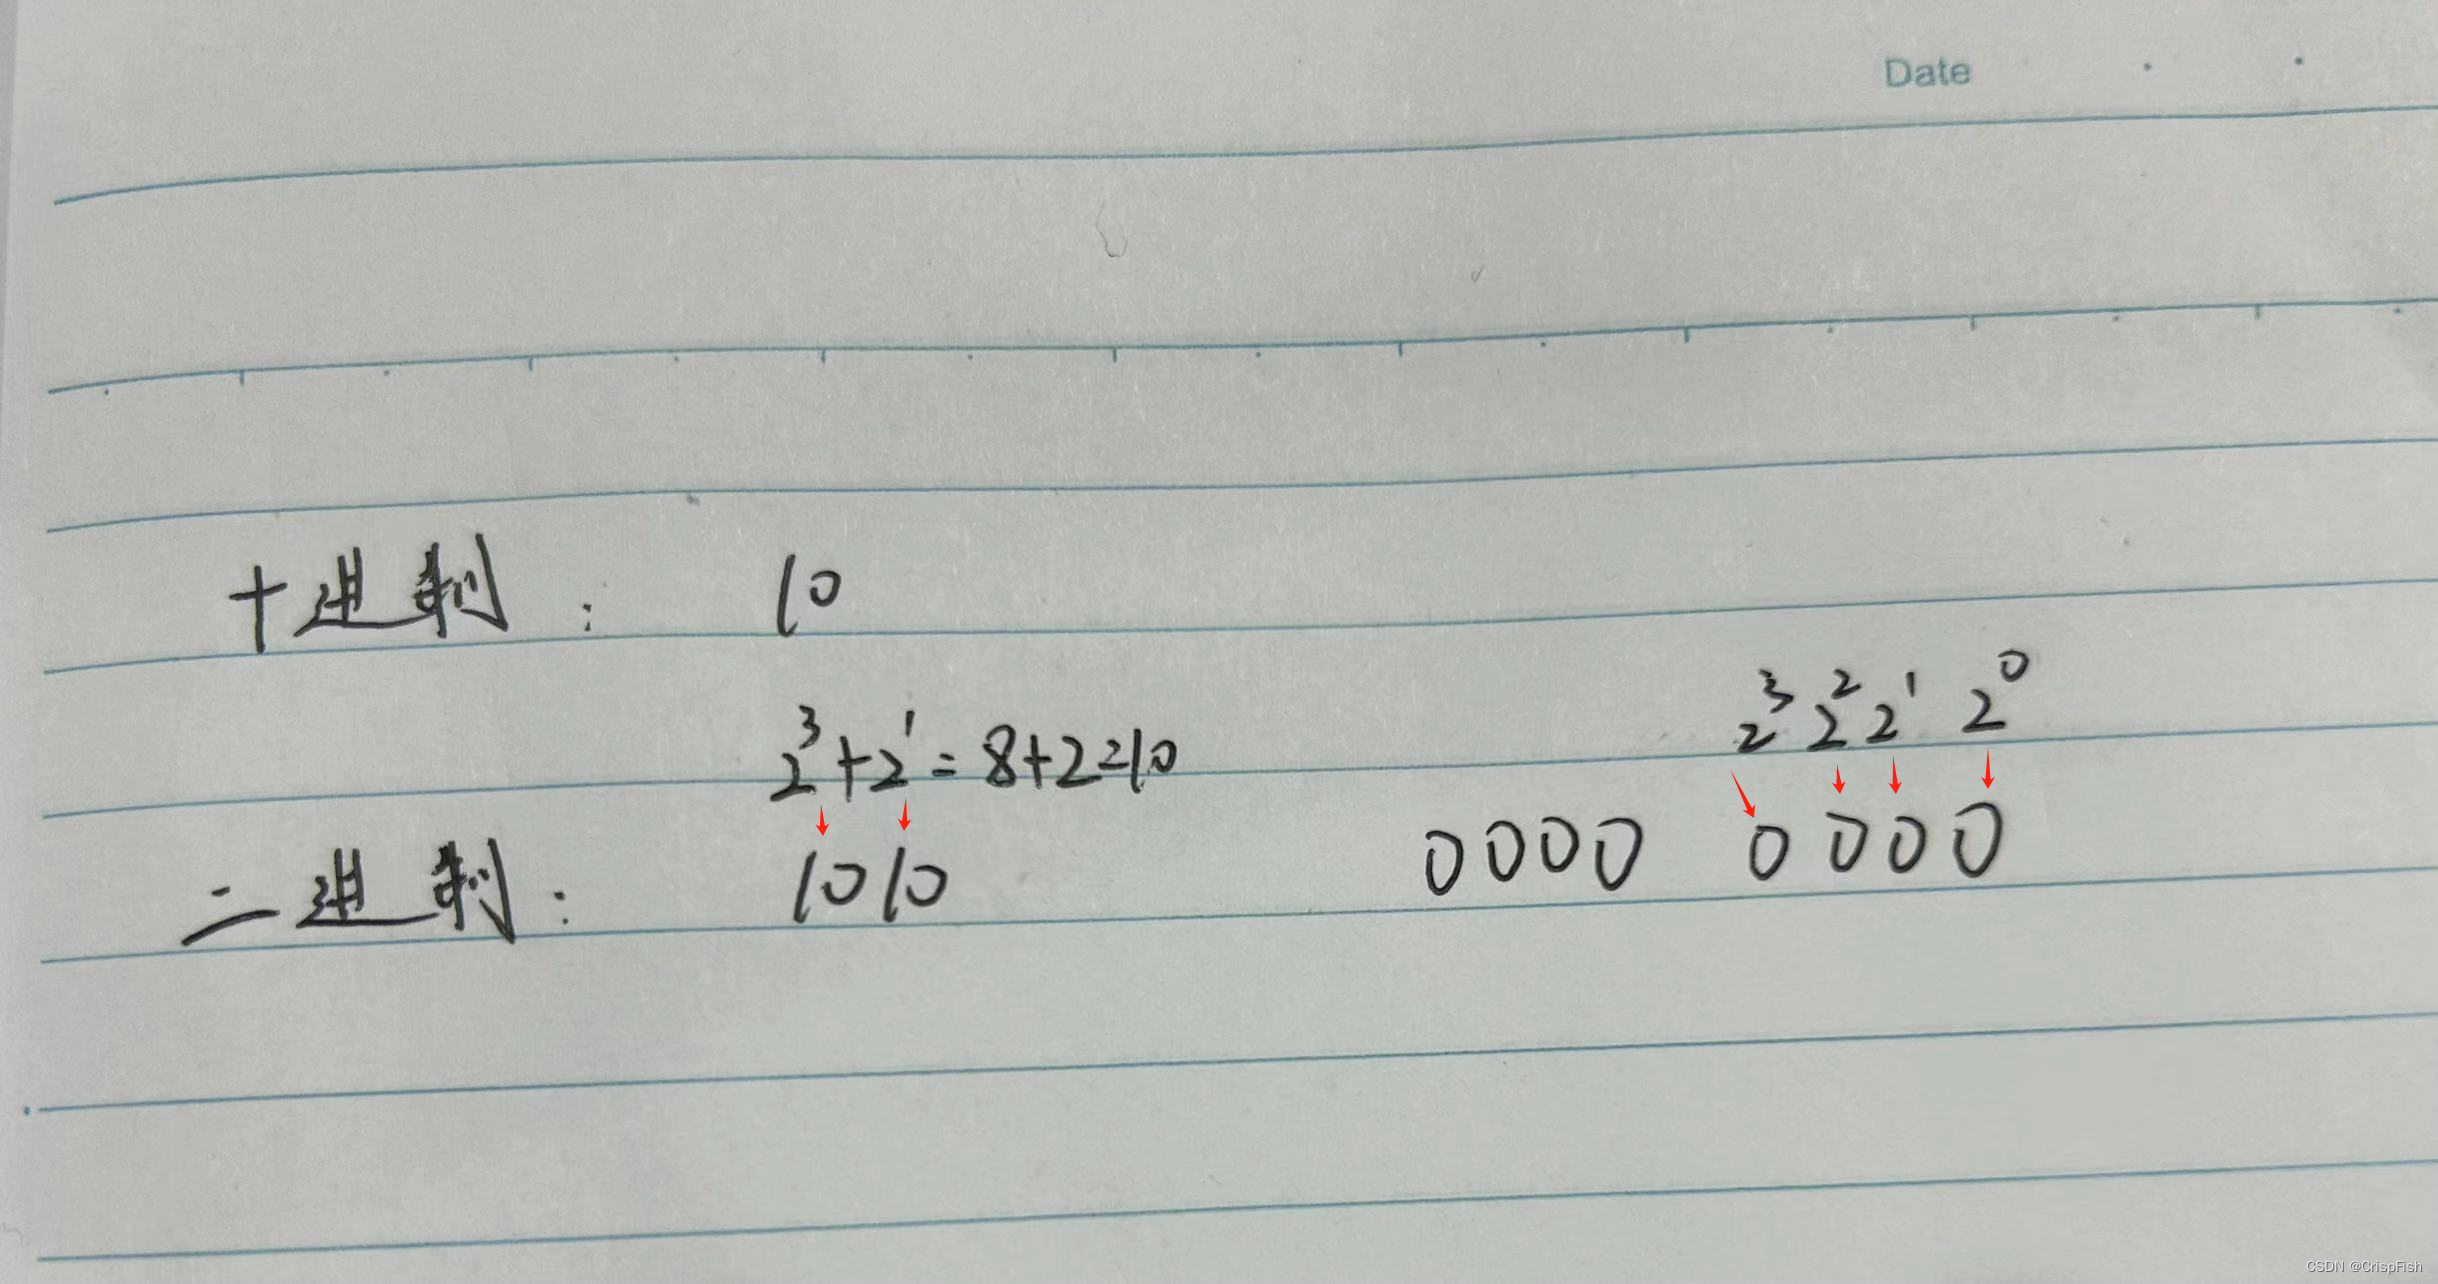 Date
十进制： 10
2³ 2² 2¹ 2⁰
2³+2¹=8+2=10
二进制： 1010 0000 0000
CSDN @CrispFish